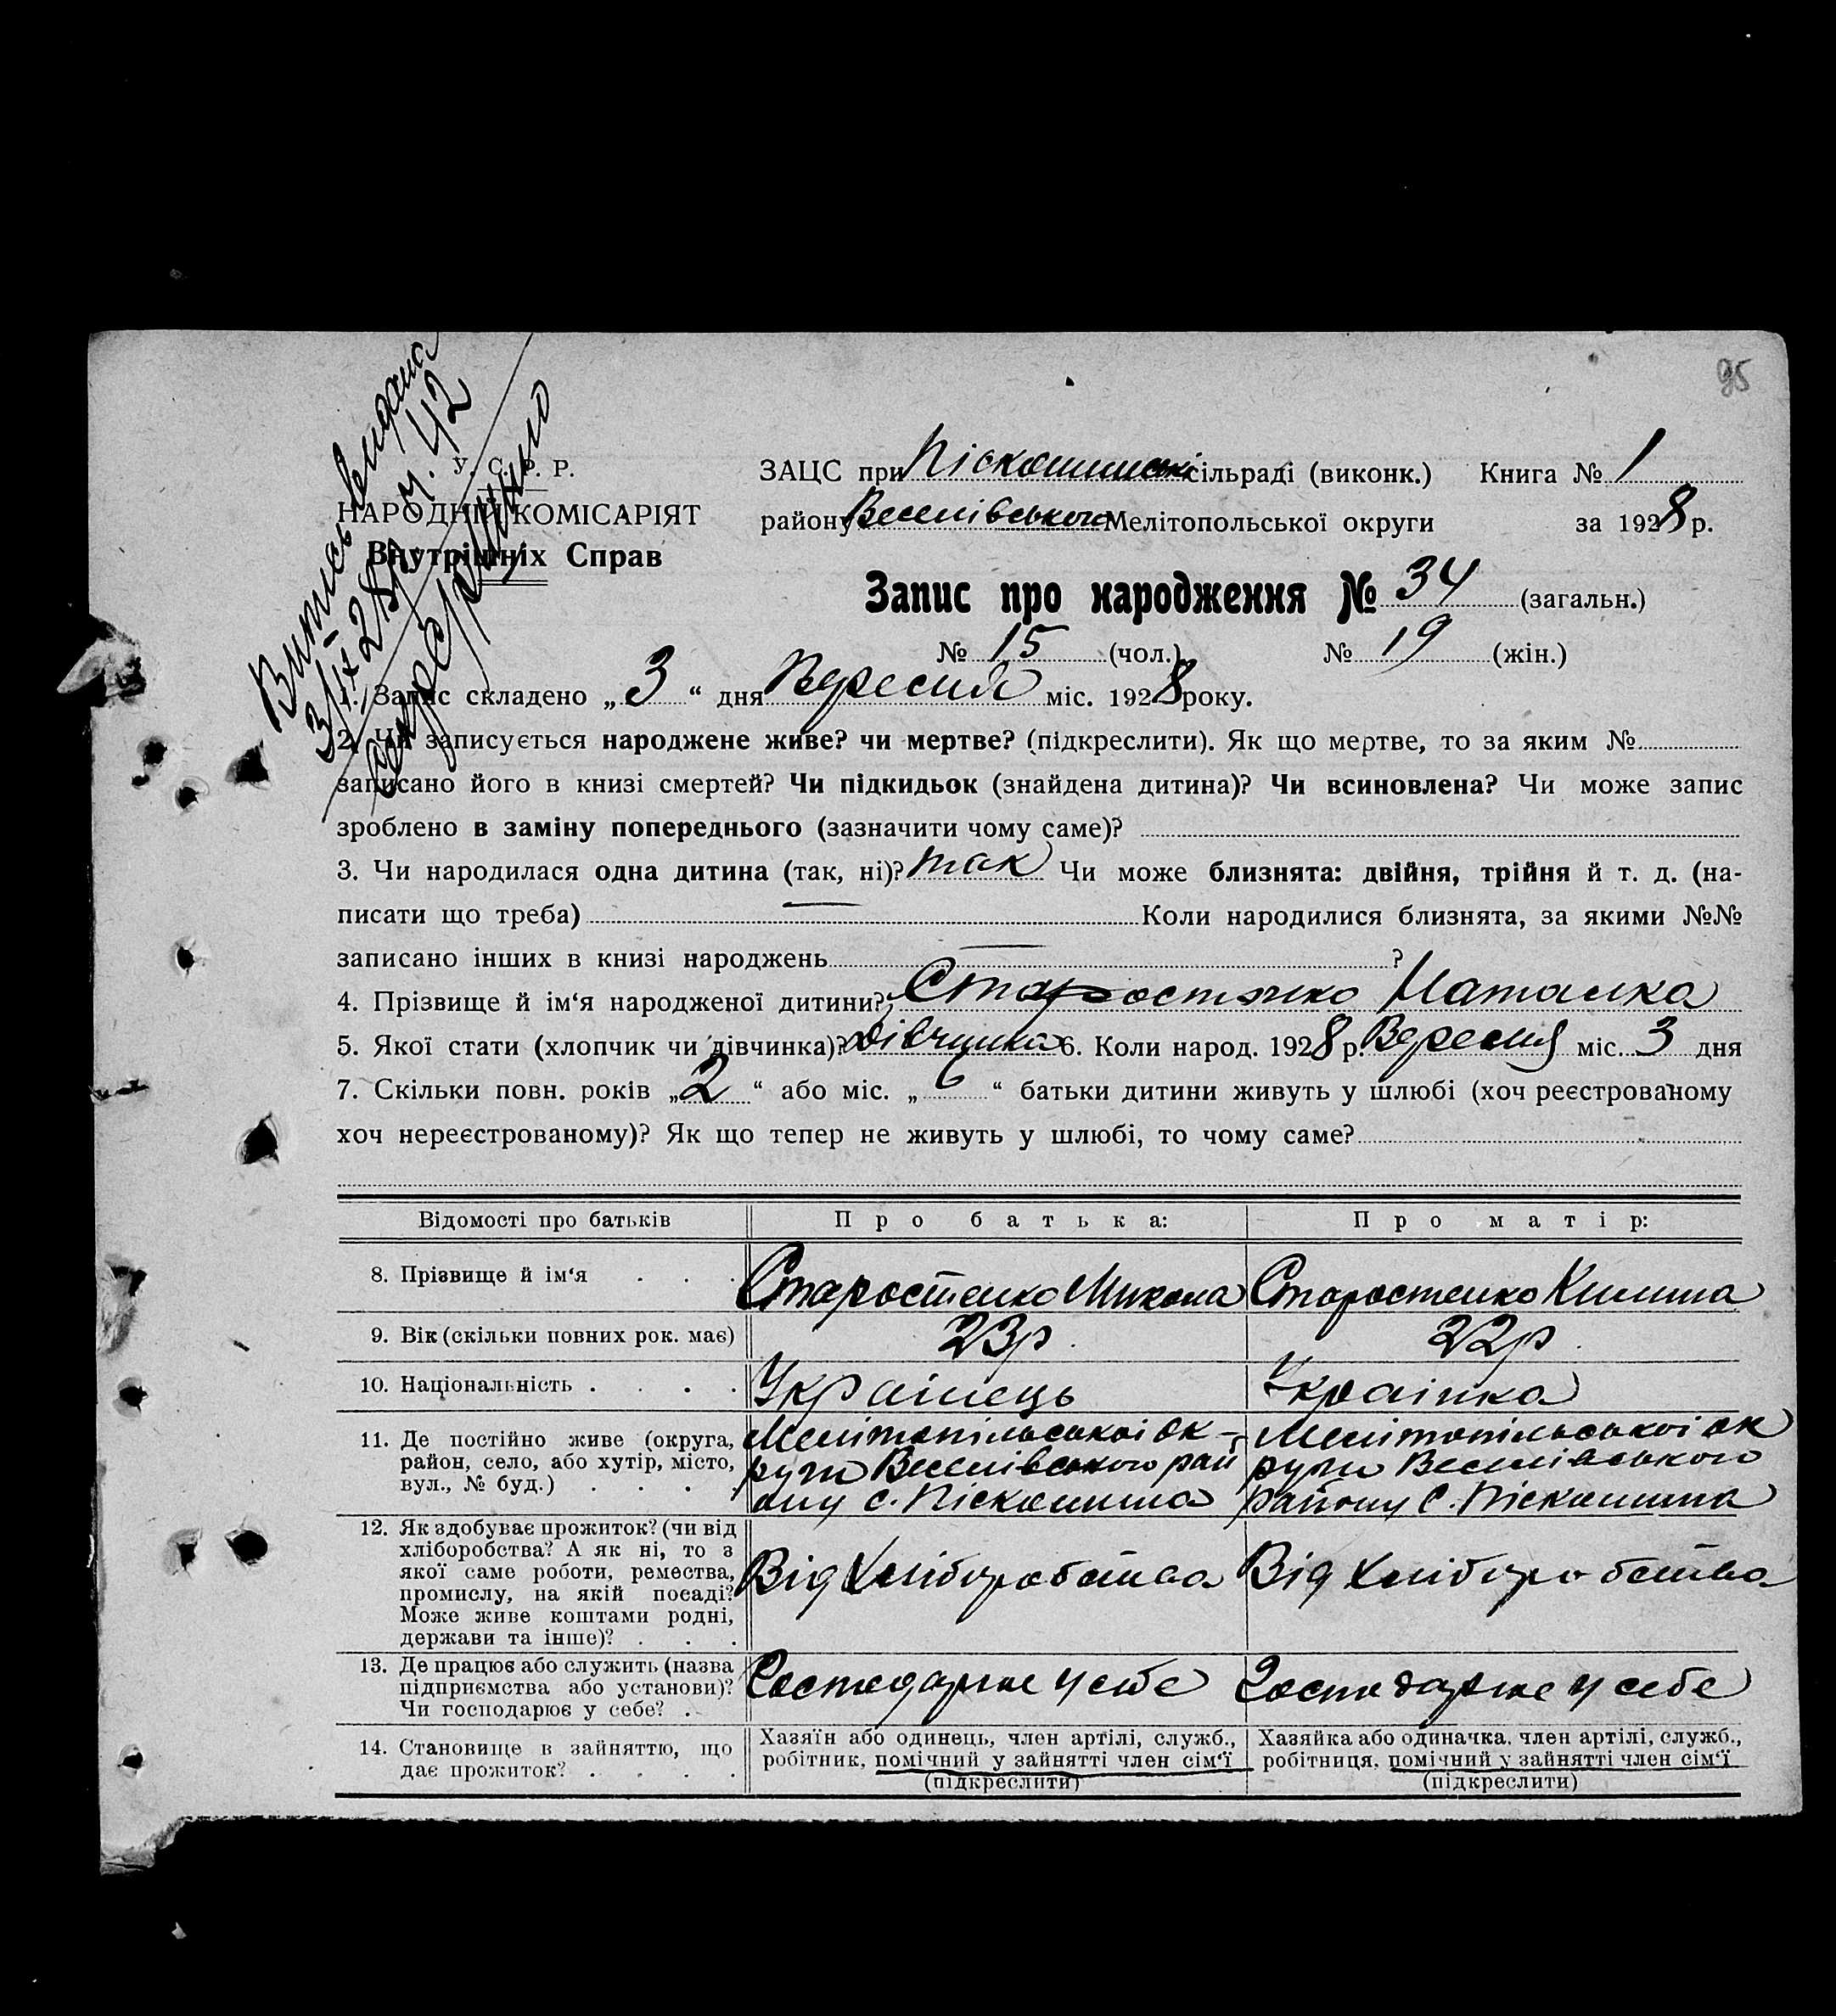 95
Витись видана
3/IX 28 р. ч. 42
У. С. Р. Р.
НАРОДНІЙ КОМІСАРІЯТ
Внутрішніх Справ
ЗАЦС при Піскашинські сільраді (виконк.) Книга № 1
району Веселівського Мелітопольської округи за 1928 р.
Запис про народження № 34 (загальн.)
№ 15 (чол.) № 19 (жін.)
1. Запис складено „ 3 “ дня Вересня міс. 1928 року.
2. Чи записується народжене живе? чи мертве? (підкреслити). Як що мертве, то за яким №
записано його в книзі смертей? Чи підкидьок (знайдена дитина)? Чи всиновлена? Чи може запис
зроблено в заміну попереднього (зазначити чому саме)?
3. Чи народилася одна дитина (так, ні)? так Чи може близнята: двійня, трійня й т. д. (на-
писати що треба) — Коли народилися близнята, за якими №№
записано інших в книзі народжень — ?
4. Прізвище й ім‘я народженої дитини? Старостенко Наталка
5. Якої стати (хлопчик чи дівчинка)? Дівчинка 6. Коли народ. 1928 р. Вересня міс. 3 дня
7. Скільки повн. років „ 2 “ або міс. „ 6 “ батьки дитини живуть у шлюбі (хоч реєстрованому
хоч нереєстрованому)? Як що тепер не живуть у шлюбі, то чому саме?
Відомості про батьків Про батька: Про матір:
8. Прізвище й ім‘я . . . Старостенко Микола Старостенко Килина
9. Вік (скільки повних рок. має) 23 р. 22 р.
10. Національність . . . . Українець Українка
11. Де постійно живе (округа,
район, село, або хутір, місто,
вул., № буд.) . . . .
Мелітопільської ок-
руги Веселівського рай
ону с. Піскашина
Мелітопільської ок
руги Веселівського
району С. Піскашина
12. Як здобуває прожиток? (чи від
хліборобства? А як ні, то з
якої саме роботи, ремества,
промислу, на якій посаді?
Може живе коштами родні,
держави та інше)? . . .
Від Хліборобства Від Хліборобства
13. Де працює або служить (назва
підприємства або установи)?
Чи господарює у себе? .
Господарює у себе Господарює у себе
14. Становище в зайняттю, що
дає прожиток? . . . .
Хазяїн або одинець, член артілі, служб.,
робітник, помічний у зайнятті член сім‘ї
(підкреслити)
Хазяйка або одиначка, член артілі, служб.,
робітниця, помічний у зайнятті член сім‘ї
(підкреслити)